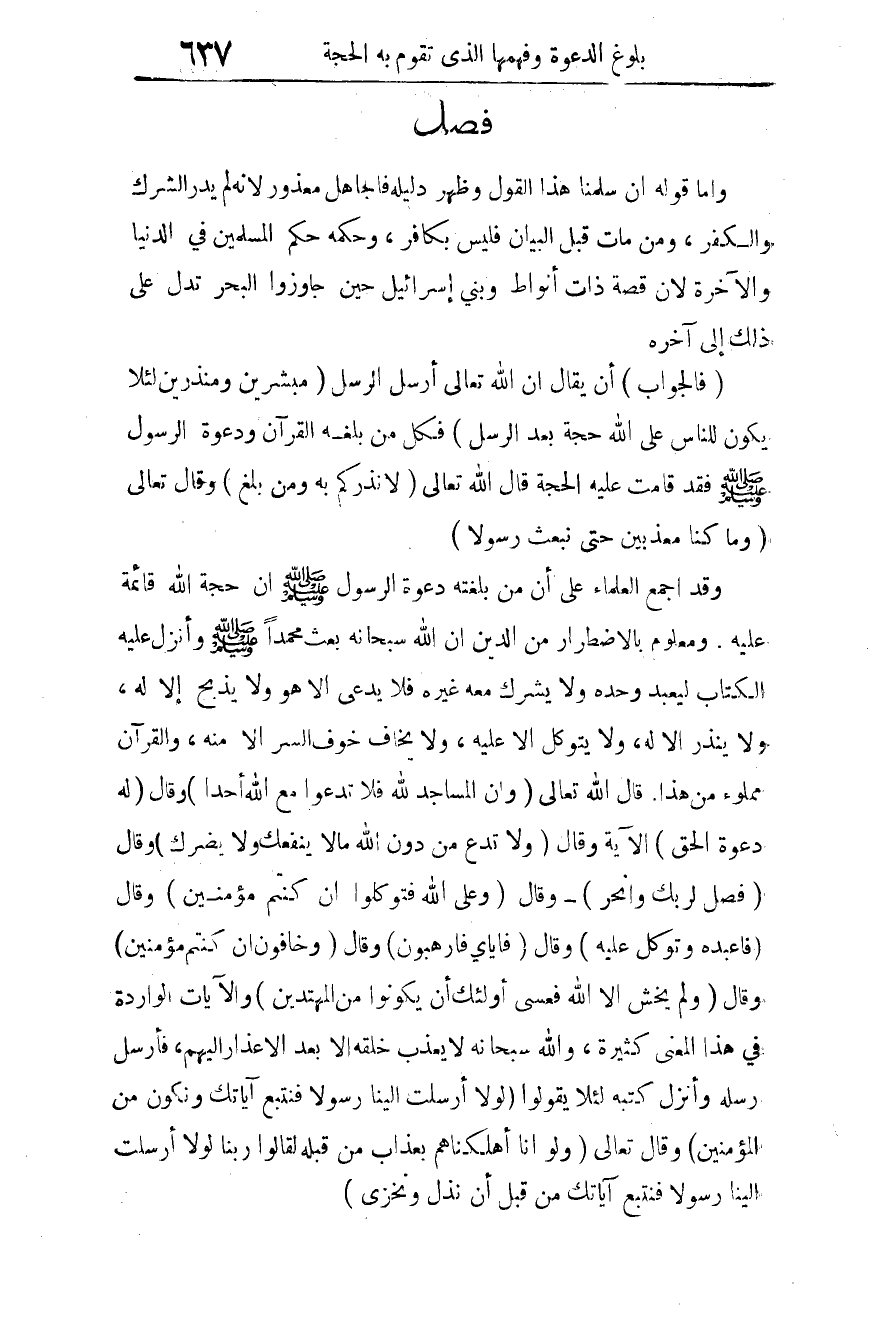 بلوغ الدعوة وفهمها الذى تقوم به الحجة ٦٣٧
فصل
واما قوله ان سلمنا هذا القول وظهر دليله فالجاهل معذور لانه لم يدر الشرك
والكفر ، ومن مات قبل البيان فليس بكافر ، وحكمه حكم المسلمين في الدنيا
والآخرة لان قصة ذات أنواط وبني إسرائيل حين جاوزوا البحر تدل على
ذلك إلى آخره
( فالجواب ) أن يقال ان الله تعالى أرسل الرسل ( مبشرين ومنذرين لئلا
يكون للناس على الله حجة بعد الرسل ) فكل من بلغه القرآن ودعوة الرسول
ﷺ فقد قامت عليه الحجة قال الله تعالى ( لانذركم به ومن بلغ ) وقال تعالى
( وما كنا معذبين حتى نبعث رسولا )
وقد اجمع العلماء على أن من بلغته دعوة الرسول ﷺ ان حجة الله قائمة
عليه . ومعلوم بالاضطرار من الدين ان الله سبحانه بعث محمداً ﷺ وأنزل عليه
الكتاب ليعبد وحده ولا يشرك معه غيره فلا يدعى الا هو ولا يذبح إلا له ،
ولا ينذر الا له، ولا يتوكل الا عليه ، ولا يخاف خوف السر الا منه ، والقرآن
مملوء من هذا. قال الله تعالى ( وان المساجد لله فلا تدعوا مع الله أحدا ) وقال ( له
دعوة الحق ) الآية وقال ( ولا تدع من دون الله مالا ينفعك ولا يضرك ) وقال
( فصل لربك وانحر ) ـ وقال ( وعلى الله فتوكلوا ان كنتم مؤمنين ) وقال
(فاعبده وتوكل عليه ) وقال ( فاياي فارهبون) وقال ( وخافون ان كنتم مؤمنين)
وقال ( ولم يخش الا الله فعسى أولئك أن يكونوا من المهتدين ) والآيات الواردة
في هذا المعنى كثيرة ، والله سبحانه لا يعذب خلقه الا بعد الاعذار اليهم، فأرسل
رسله وأنزل كتبه لئلا يقولوا (لولا أرسلت الينا رسولا فنتبع آياتك ونكون من
المؤمنين) وقال تعالى ( ولو انا أهلكناهم بعذاب من قبله لقالوا ربنا لولا أرسلت
الينا رسولا فنتبع آياتك من قبل أن نذل ونخزى )